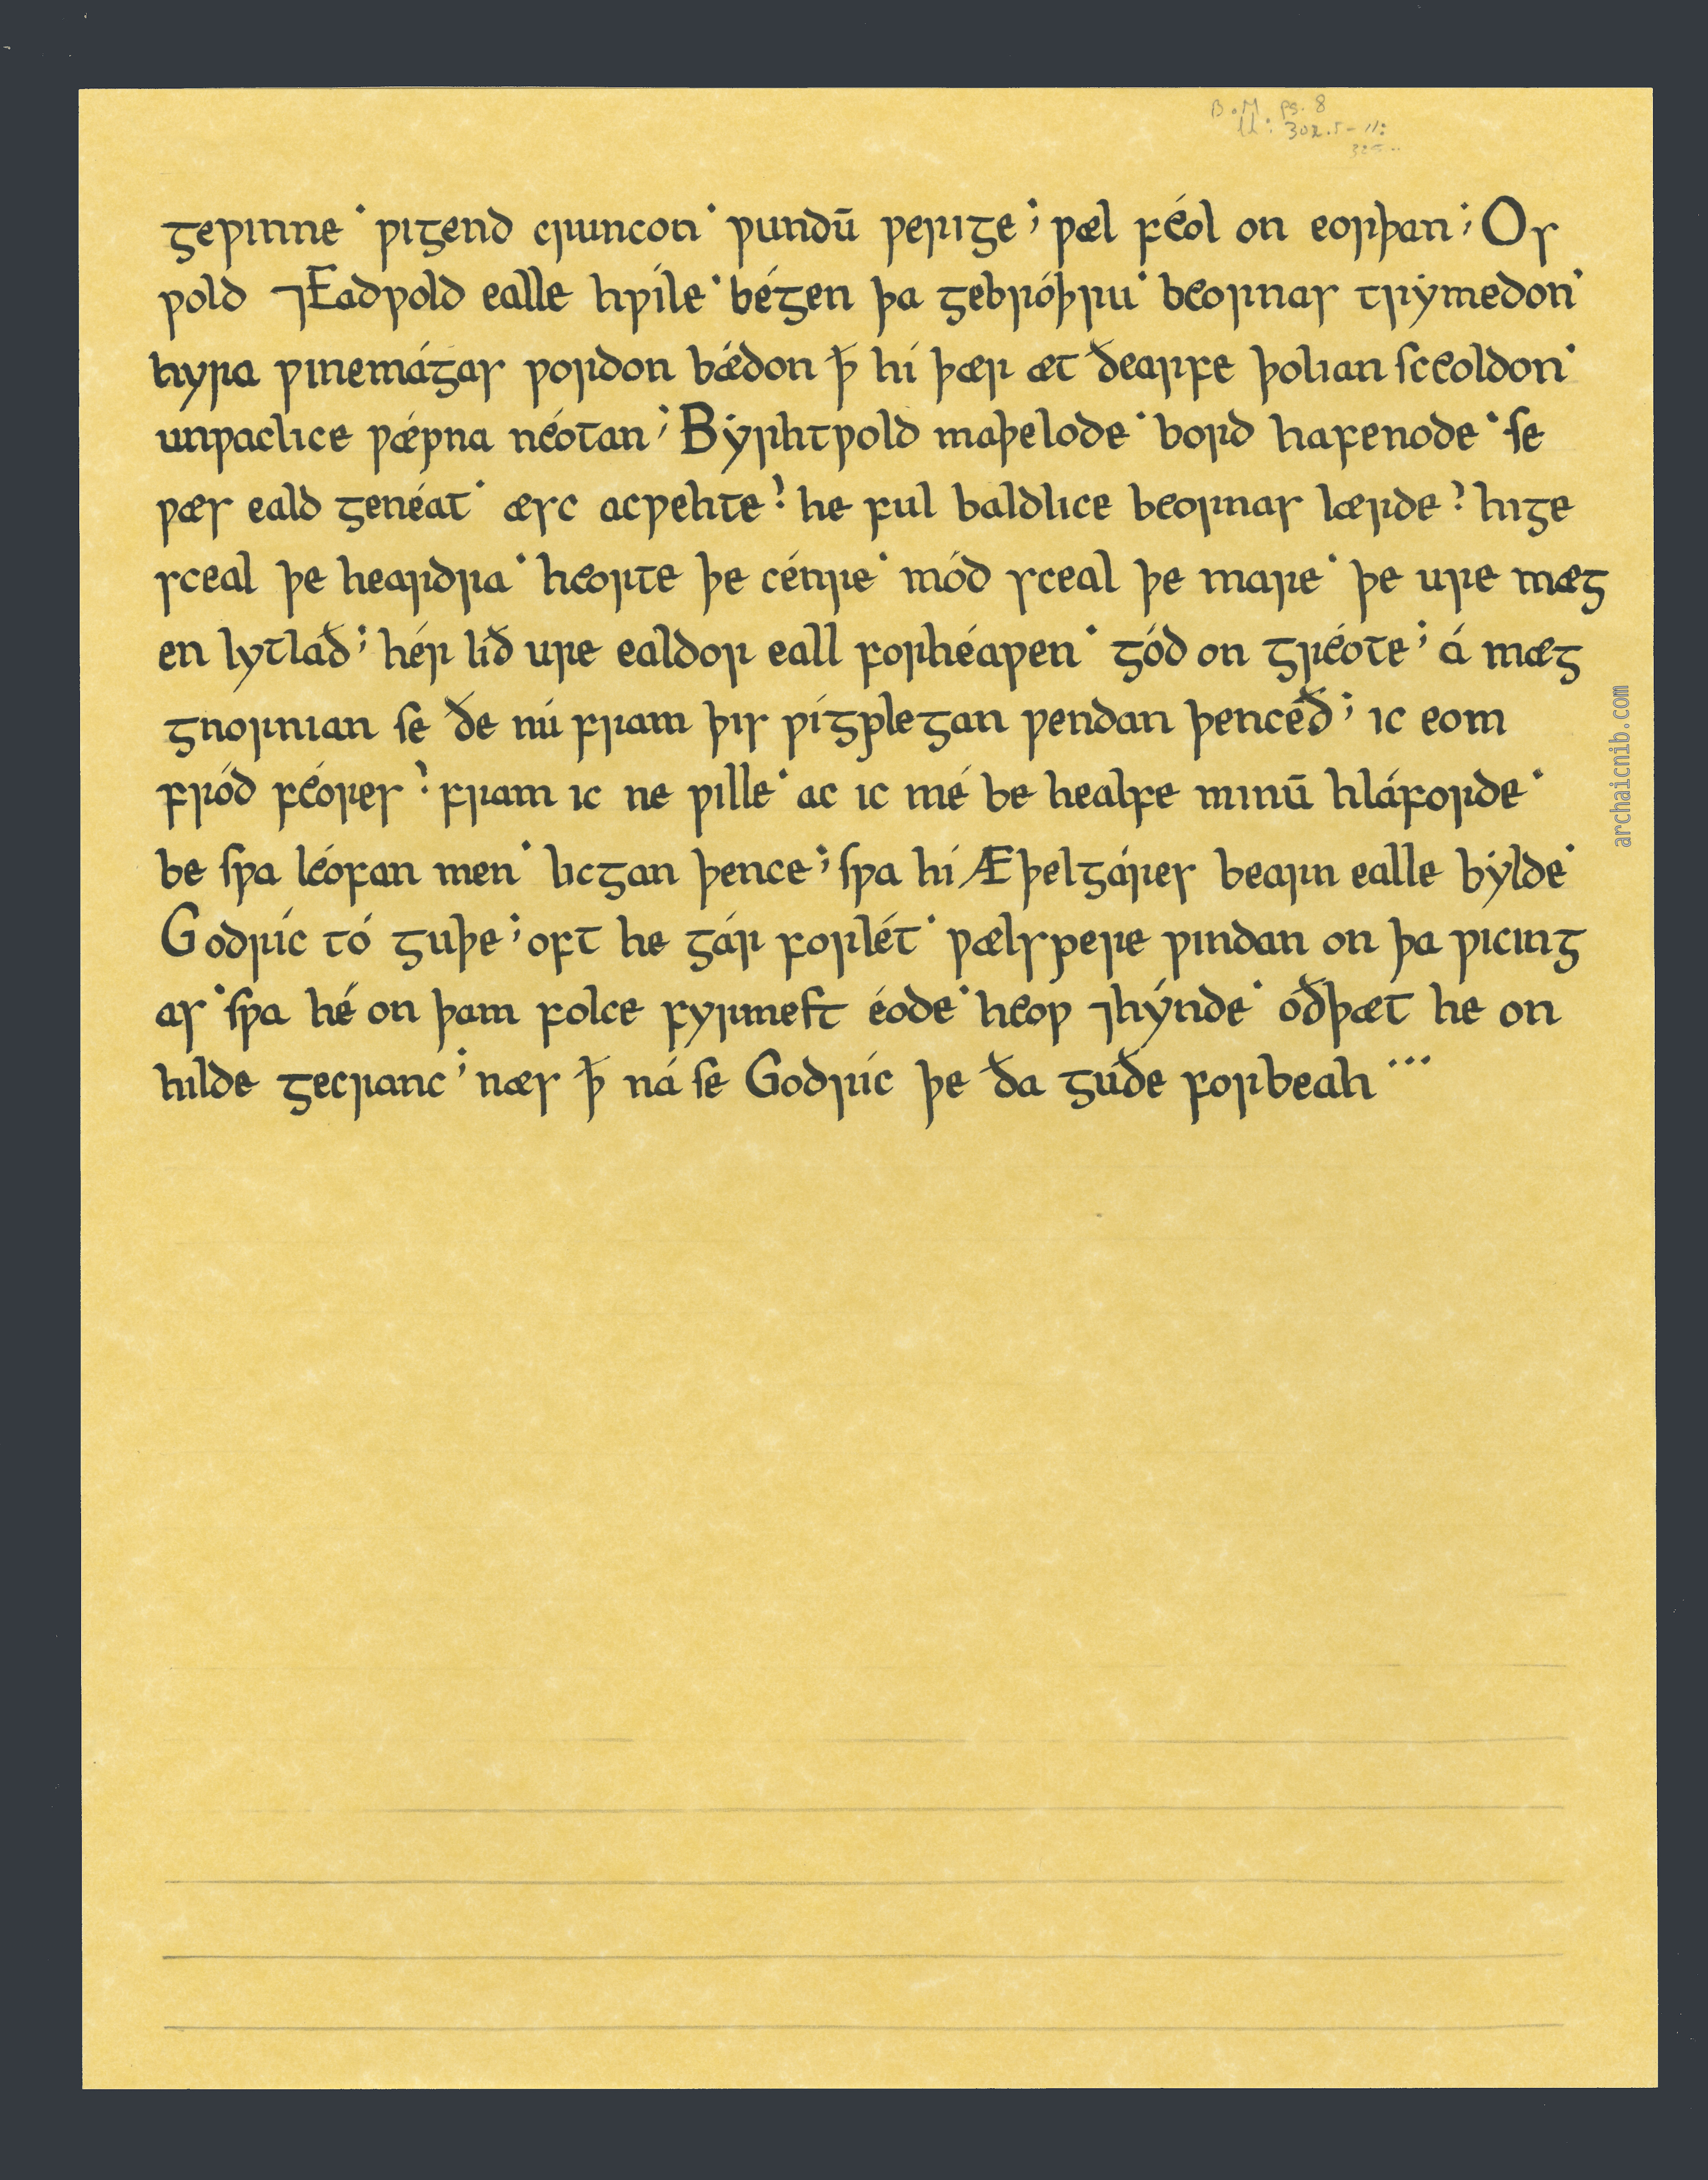 B.M. pg. 8
ll: 302.5-11:
325..
geƿinne˙ ƿigend cruncon˙ ƿundū ƿerige; ƿæl féol on eorþan; Os
ƿold ⁊Eadƿold ealle hƿíle˙ bégen þa gebróþru˙ beornas trẏmedon˙
hyra ƿinemágas ƿordon bǽdon ꝥ hí þær æt ðearfe þolian ſceoldon˙
unƿaclice ƿǽpna néotan; Bẏrhtƿold maþelode˙ bord hafenode˙ ſe
ƿæs eald genéat˙ æsc acƿehte? he ful baldlice beornas lærde? hige
sceal þe heardra˙ heorte þe cénre˙ mód sceal þe mare˙ þe ure mæg
en lytlað; hér lið ure ealdor eall forhéaƿen˙ gód on gréote; á mæg
gnornian ſe ðe nú fram þis ƿígplegan ƿendan þenceð; ic eom
fród féores? fram ic ne ƿille˙ ac ic mé be healfe minū hláforde˙
be ſƿa léofan men˙ licgan þence; ſƿa hí Æþelgáres bearn ealle bẏlde˙
Godríc tó guþe; oft he gár forlét˙ ƿælspere ƿindan on þa ƿicing
as˙ ſƿa hé on þam folce fyrmeſt éode˙ heoƿ ⁊hýnde˙ oðþæt he on
hilde gecranc; næs ꝥ ná ſe Godríc þe ða guðe forbeah ···
archaicnib.com